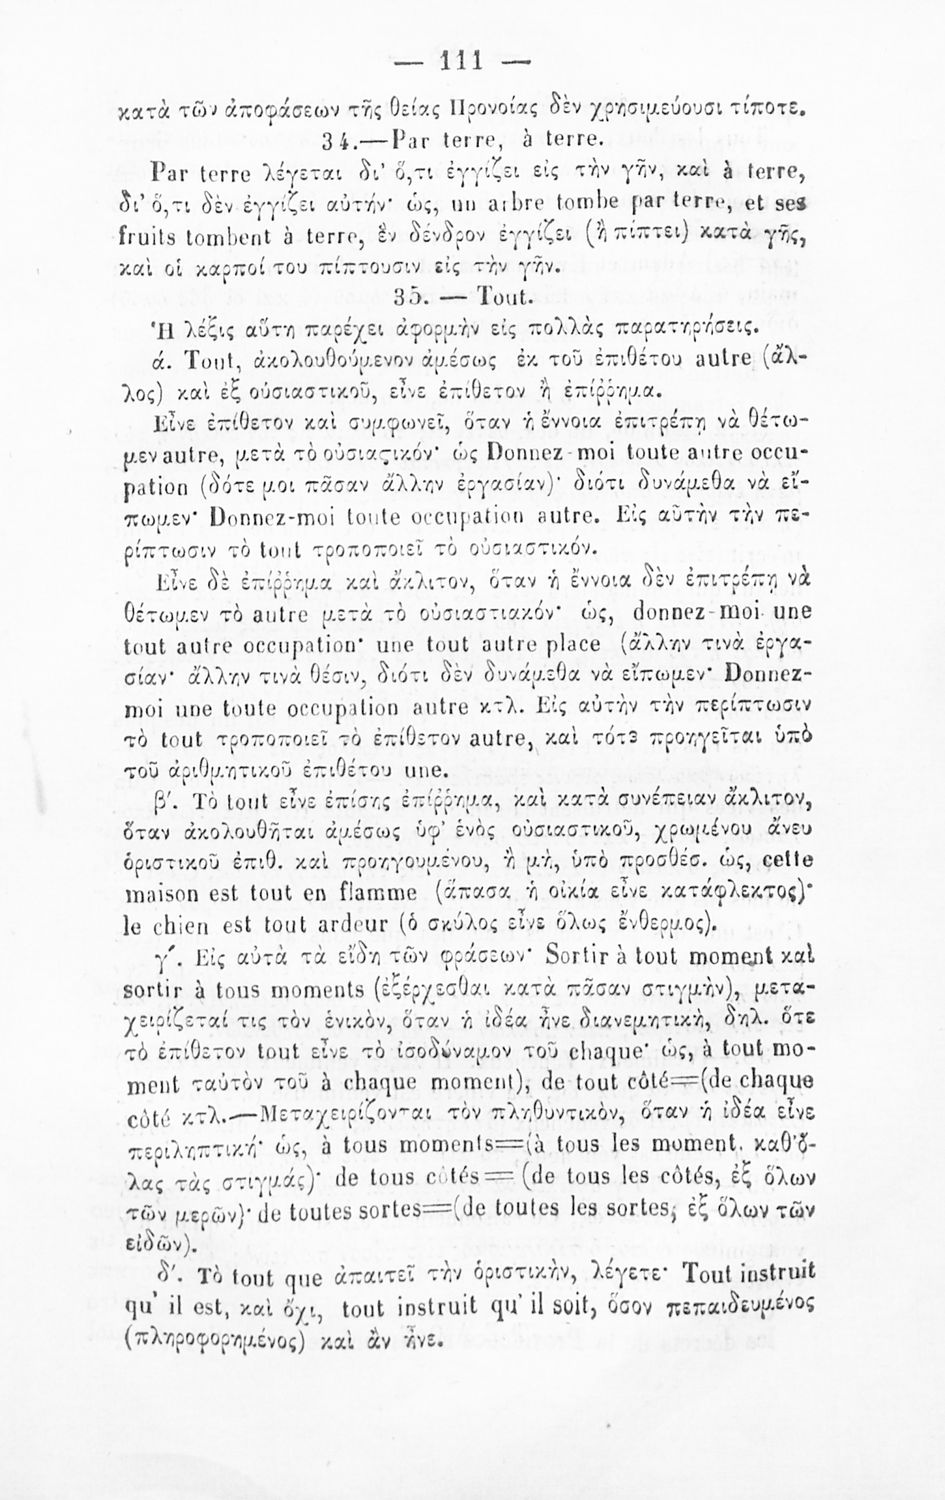 — 111 —
κατὰ τῶν ἀποφάσεων τῆς θείας Προνοίας δὲν χρησιμεύουσι τίποτε.
34.—Par terre, à terre.
Par terre λέγεται δι' ὅ,τι ἐγγίζει εἰς τὴν γῆν, καὶ à terre,
δι' ὅ,τι δὲν ἐγγίζει αὐτήν· ὡς, un arbre tombe par terre, et ses
fruits tombent à terre, ἓν δένδρον ἐγγίζει (ἢ πίπτει) κατὰ γῆς,
καὶ οἱ καρποί του πίπτουσιν εἰς τὴν γῆν.
35. — Tout.
Ἡ λέξις αὕτη παρέχει ἀφορμὴν εἰς πολλὰς παρατηρήσεις.
ά. Tout, ἀκολουθούμενον ἀμέσως ἐκ τοῦ ἐπιθέτου autre (ἄλ-
λος) καὶ ἐξ οὐσιαστικοῦ, εἶνε ἐπίθετον ἢ ἐπίῤῥημα.
Εἶνε ἐπίθετον καὶ συμφωνεῖ, ὅταν ἡ ἔννοια ἐπιτρέπῃ νὰ θέτω-
μεν autre, μετὰ τὸ οὐσιαϛικόν· ὡς Donnez-moi toute autre occu-
pation (δότε μοι πᾶσαν ἄλλην ἐργασίαν)· διότι δυνάμεθα νὰ εἴ-
πωμεν· Donnez-moi toute occupation autre. Εἰς αὐτὴν τὴν πε-
ρίπτωσιν τὸ tout τροποποιεῖ τὸ οὐσιαστικόν.
Εἶνε δὲ ἐπίῤῥημα καὶ ἄκλιτον, ὅταν ἡ ἔννοια δὲν ἐπιτρέπῃ νὰ
θέτωμεν τὸ autre μετὰ τὸ οὐσιαστιακόν· ὡς, donnez-moi une
tout autre occupation· une tout autre place (ἄλλην τινὰ ἐργα-
σίαν· ἄλλην τινὰ θέσιν, διότι δὲν δυνάμεθα νὰ εἴπωμεν· Donnez-
moi une toute occupation autre κτλ. Εἰς αὐτὴν τὴν περίπτωσιν
τὸ tout τροποποιεῖ τὸ ἐπίθετον autre, καὶ τότε προηγεῖται ὑπὸ
τοῦ ἀριθμητικοῦ ἐπιθέτου une.
β'. Τὸ tout εἶνε ἐπίσης ἐπίῤῥημα, καὶ κατὰ συνέπειαν ἄκλιτον,
ὅταν ἀκολουθῆται ἀμέσως ὑφ' ἑνὸς οὐσιαστικοῦ, χρωμένου ἄνευ
ὁριστικοῦ ἐπιθ. καὶ προηγουμένου, ἢ μὴ, ὑπὸ προσθέσ. ὡς, cette
maison est tout en flamme (ἅπασα ἡ οἰκία εἶνε κατάφλεκτος)·
le chien est tout ardeur (ὁ σκύλος εἶνε ὅλως ἔνθερμος).
γ'. Εἰς αὐτὰ τὰ εἴδη τῶν φράσεων· Sortir à tout moment καὶ
sortir à tous moments (ἐξέρχεσθαι κατὰ πᾶσαν στιγμὴν), μετα-
χειρίζεταί τις τὸν ἑνικὸν, ὅταν ἡ ἰδέα ἦνε διανεμητικὴ, δηλ. ὅτε
τὸ ἐπίθετον tout εἶνε τὸ ἰσοδύναμον τοῦ chaque· ὡς, à tout mo-
ment ταὐτὸν τοῦ à chaque moment), de tout côté=(de chaque
côté κτλ.—Μεταχειρίζονται τὸν πληθυντικὸν, ὅταν ἡ ἰδέα εἶνε
περιληπτική· ὡς, à tous moments=(à tous les moment. καθ'ὅ-
λας τὰς στιγμάς)· de tous côtés=(de tous les côtés, ἐξ ὅλων
τῶν μερῶν)· de toutes sortes=(de toutes les sortes, ἐξ ὅλων τῶν
εἰδῶν).
δ'. Τὸ tout que ἀπαιτεῖ τὴν ὁριστικὴν, λέγετε· Tout instruit
qu' il est, καὶ ὄχι, tout instruit qu' il soit, ὅσον πεπαιδευμένος
(πληροφορημένος) καὶ ἂν ἦνε.